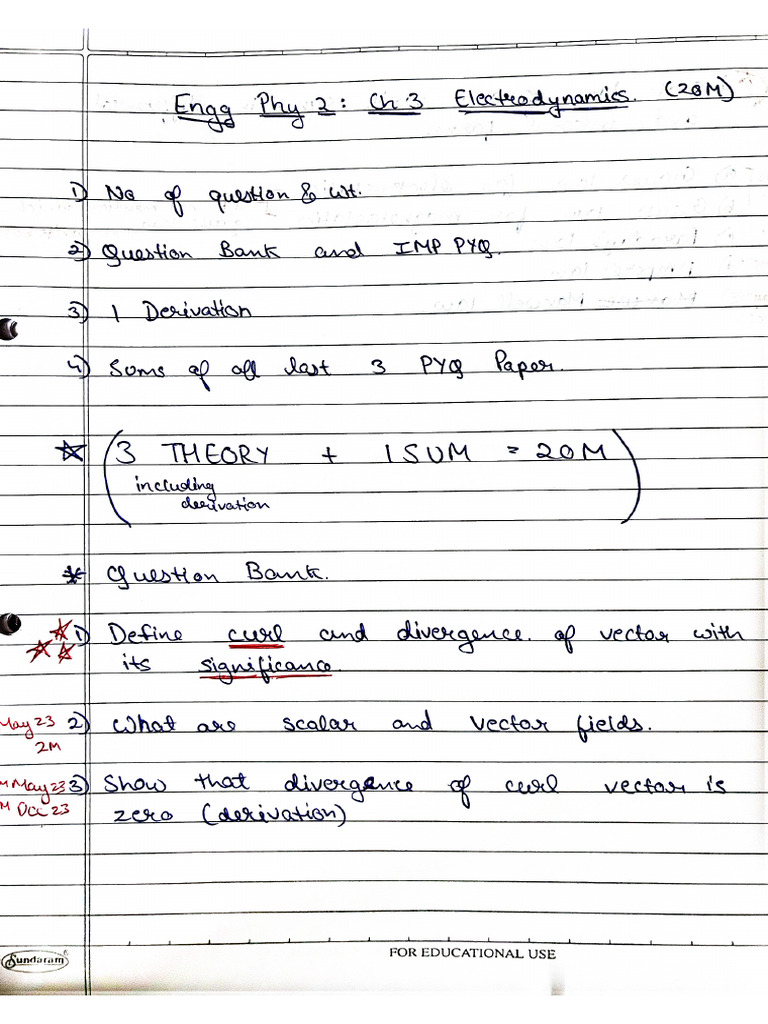 Engg Phy 2: Ch 3 Electrodynamics. (20M)
1) No of question & wt.
2) Question Bank and IMP PYQ.
3) 1 Derivation
4) Sums of all last 3 PYQ Paper.
(3 THEORY + 1 SUM = 20M)
including
derivation
* Question Bank.
1) Define curl and divergence. of vector with
its significance.
May 23 2) What are scalar and vector fields.
2M
May 23 3) Show that divergence of curl vector is
Dec 23 zero (derivation)
Sundaram
FOR EDUCATIONAL USE